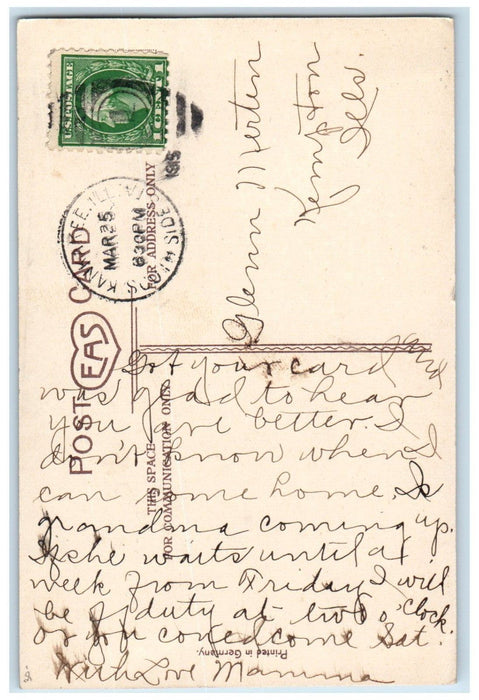 U.S. POSTAGE
1 CENT 1
KANKAKEE, ILLINOIS
MAR 25
630PM
1915
SOUTH SIDE
POST CARD
EAS
FOR ADDRESS ONLY
THIS SPACE
FOR COMMUNICATION ONLY
Glenn Merten
Ills.
Got your card and
was glad to hear
you are better. I
don't know when I
can come home. Is
grandma coming up.
If she waits until a
week from Friday I will
be of duty at two o'clock.
or you could come Sat.
With Love Mamma
Printed in Germany.